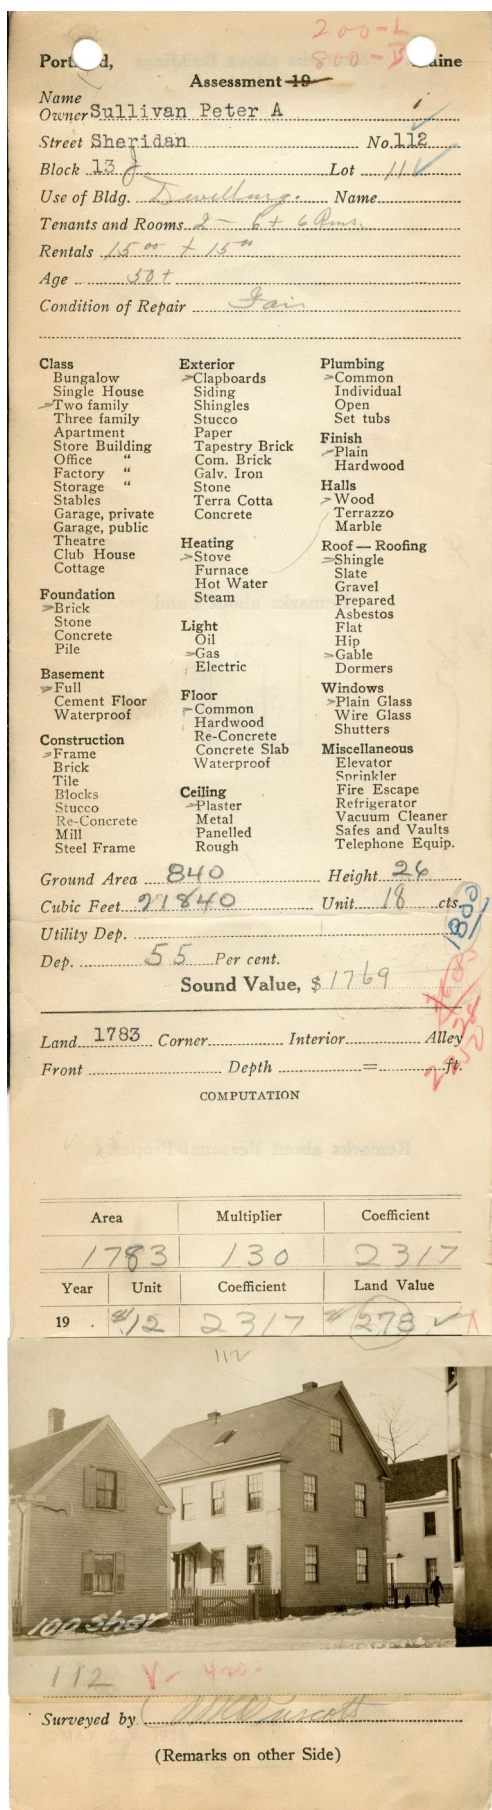 200-L
800-B
Portland, Maine
Assessment 19
Name
Owner Sullivan Peter A
Street Sheridan No. 112
Block 13 J Lot 11
Use of Bldg. Dwelling. Name
Tenants and Rooms 2 - 6 + 6 Rms.
Rentals 15.00 + 15.00
Age 50+
Condition of Repair Fair
Class
Bungalow
Single House
Two family
Three family
Apartment
Store Building
Office "
Factory "
Storage "
Stables
Garage, private
Garage, public
Theatre
Club House
Cottage
Foundation
Brick
Stone
Concrete
Pile
Basement
Full
Cement Floor
Waterproof
Construction
Frame
Brick
Tile
Blocks
Stucco
Re-Concrete
Mill
Steel Frame
Exterior
Clapboards
Siding
Shingles
Stucco
Paper
Tapestry Brick
Com. Brick
Galv. Iron
Stone
Terra Cotta
Concrete
Heating
Stove
Furnace
Hot Water
Steam
Light
Oil
Gas
Electric
Floor
Common
Hardwood
Re-Concrete
Concrete Slab
Waterproof
Ceiling
Plaster
Metal
Panelled
Rough
Plumbing
Common
Individual
Open
Set tubs
Finish
Plain
Hardwood
Halls
Wood
Terrazzo
Marble
Roof — Roofing
Shingle
Slate
Gravel
Prepared
Asbestos
Flat
Hip
Gable
Dormers
Windows
Plain Glass
Wire Glass
Shutters
Miscellaneous
Elevator
Sprinkler
Fire Escape
Refrigerator
Vacuum Cleaner
Safes and Vaults
Telephone Equip.
Ground Area 840 Height 26
Cubic Feet 21840 Unit 18 cts.
1800
Utility Dep.
Dep. 55 Per cent.
Sound Value, $ 1769
Land 1783 Corner Interior Alley
Front Depth = ft.
COMPUTATION
Area Multiplier Coefficient
1783 130 2317
Year Unit Coefficient Land Value
19 . $.12 2317 $278
112
100 Sher
112
Surveyed by
(Remarks on other Side)